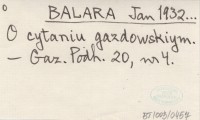 BALARA Jan 1932...
O cytaniu gazdowskiym.
— Gaz. Podh. 20, nr 4.